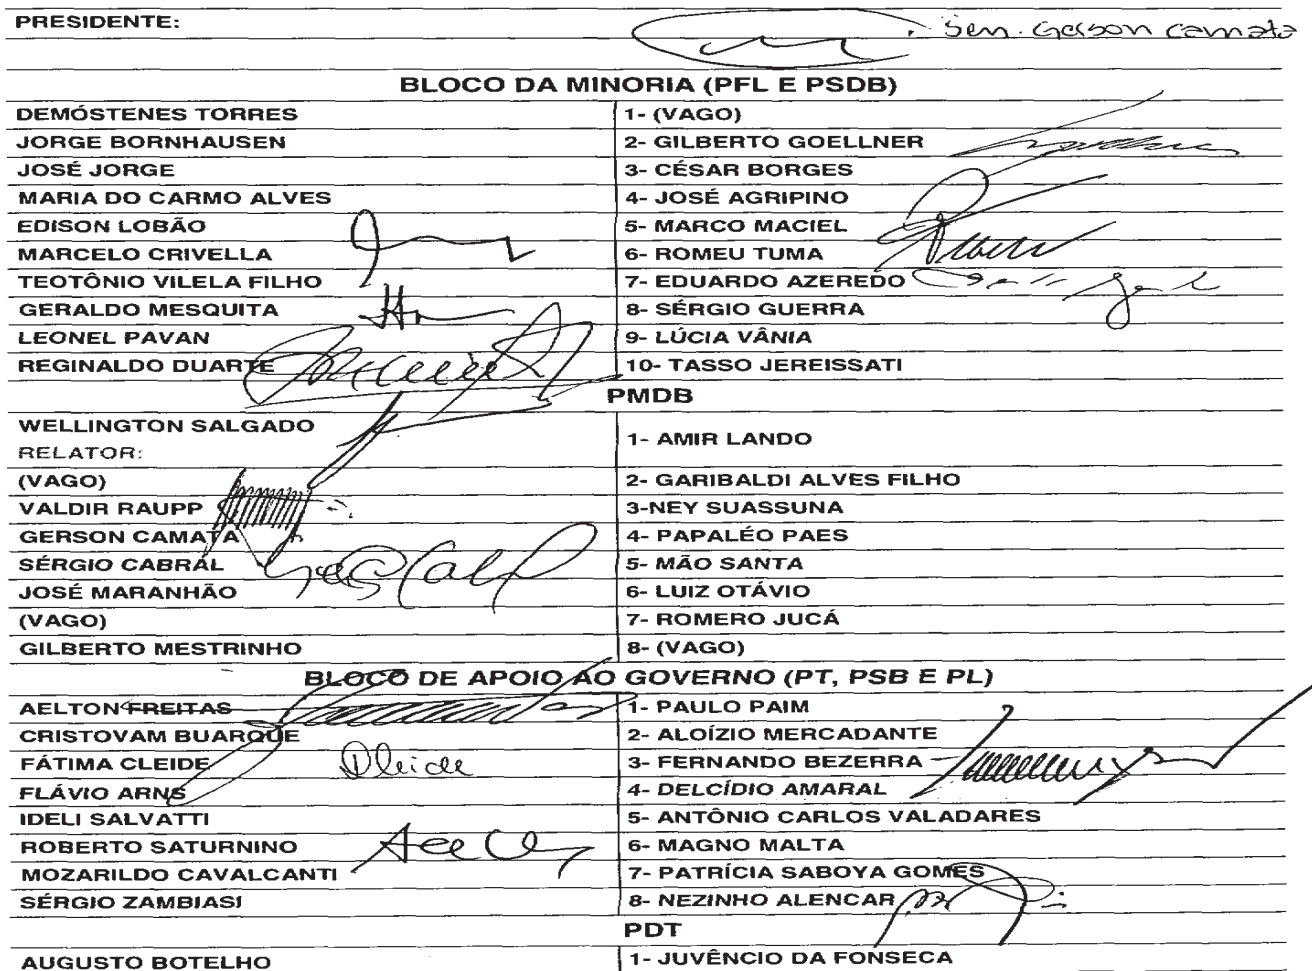 PRESIDENTE:
Sen. Gerson Camata
BLOCO DA MINORIA (PFL E PSDB)
DEMÓSTENES TORRES 1- (VAGO)
JORGE BORNHAUSEN 2- GILBERTO GOELLNER
JOSÉ JORGE 3- CÉSAR BORGES
MARIA DO CARMO ALVES 4- JOSÉ AGRIPINO
EDISON LOBÃO 5- MARCO MACIEL
MARCELO CRIVELLA 6- ROMEU TUMA
TEOTÔNIO VILELA FILHO 7- EDUARDO AZEREDO
GERALDO MESQUITA 8- SÉRGIO GUERRA
LEONEL PAVAN 9- LÚCIA VÂNIA
REGINALDO DUARTE 10- TASSO JEREISSATI
PMDB
WELLINGTON SALGADO
RELATOR: 1- AMIR LANDO
(VAGO) 2- GARIBALDI ALVES FILHO
VALDIR RAUPP 3-NEY SUASSUNA
GERSON CAMATA 4- PAPALÉO PAES
SÉRGIO CABRAL 5- MÃO SANTA
JOSÉ MARANHÃO 6- LUIZ OTÁVIO
(VAGO) 7- ROMERO JUCÁ
GILBERTO MESTRINHO 8- (VAGO)
BLOCO DE APOIO AO GOVERNO (PT, PSB E PL)
AELTON FREITAS 1- PAULO PAIM
CRISTOVAM BUARQUE 2- ALOÍZIO MERCADANTE
FÁTIMA CLEIDE 3- FERNANDO BEZERRA
FLÁVIO ARNS 4- DELCÍDIO AMARAL
IDELI SALVATTI 5- ANTÔNIO CARLOS VALADARES
ROBERTO SATURNINO 6- MAGNO MALTA
MOZARILDO CAVALCANTI 7- PATRÍCIA SABOYA GOMES
SÉRGIO ZAMBIASI 8- NEZINHO ALENCAR
PDT
AUGUSTO BOTELHO 1- JUVÊNCIO DA FONSECA